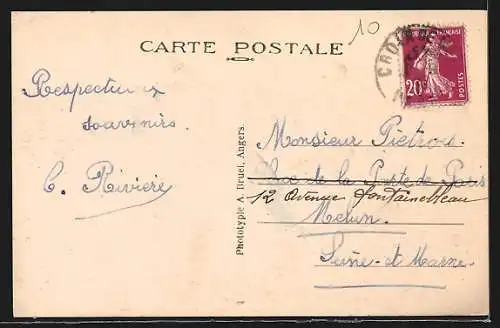 10
CARTE POSTALE
RÉPUBLIQUE FRANÇAISE
20c
POSTES
Respectueux
souvenirs.
C. Rivière
Phototypie A. Bruel, Angers.
Monsieur Pietrou
Rue de la Porte de Paris
12 Avenue Fontainebleau
Melun.
Seine-et-Marne